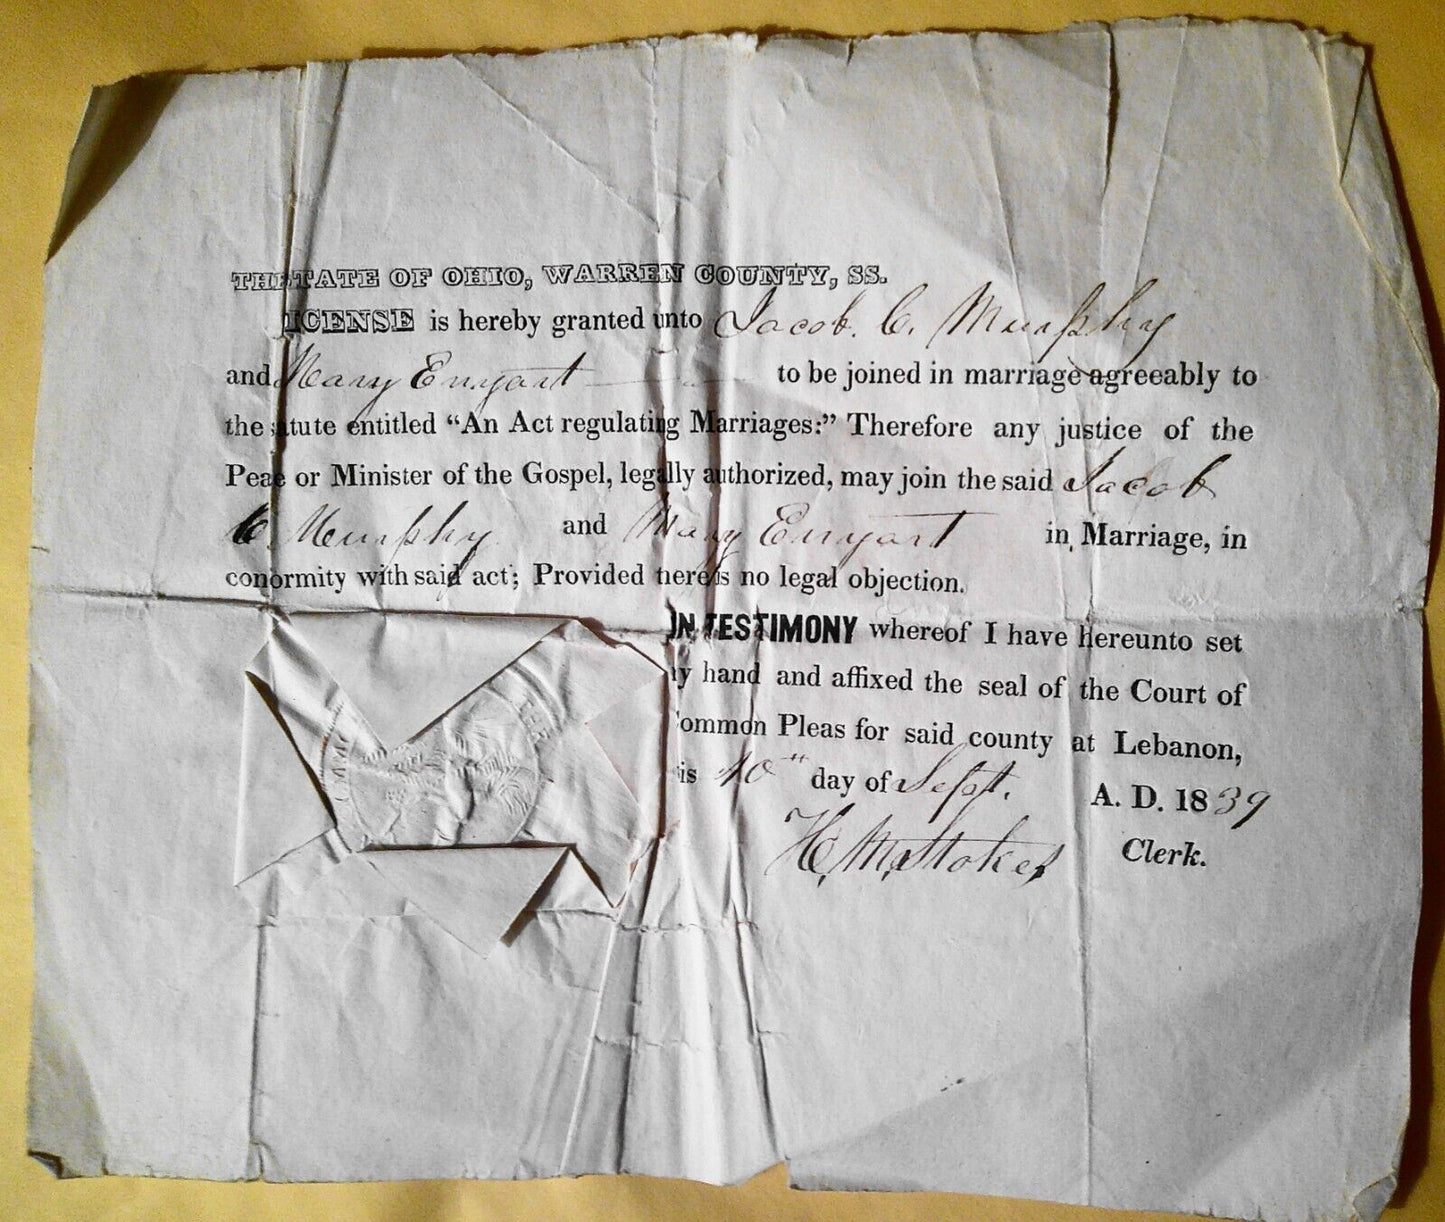 THE TATE OF OHIO, WARREN COUNTY, SS.
ICENSE is hereby granted unto Jacob. C. Murphy
and Mary Enyart to be joined in marriage agreeably to
the atute entitled "An Act regulating Marriages:" Therefore any justice of the
Peae or Minister of the Gospel, legally authorized, may join the said Jacob
C. Murphy and Mary Enyart in Marriage, in
conormity with said act; Provided there is no legal objection.
IN TESTIMONY whereof I have hereunto set
y hand and affixed the seal of the Court of
ommon Pleas for said county at Lebanon,
is 10th day of Sept. A. D. 1839
H. M. Stokes Clerk.